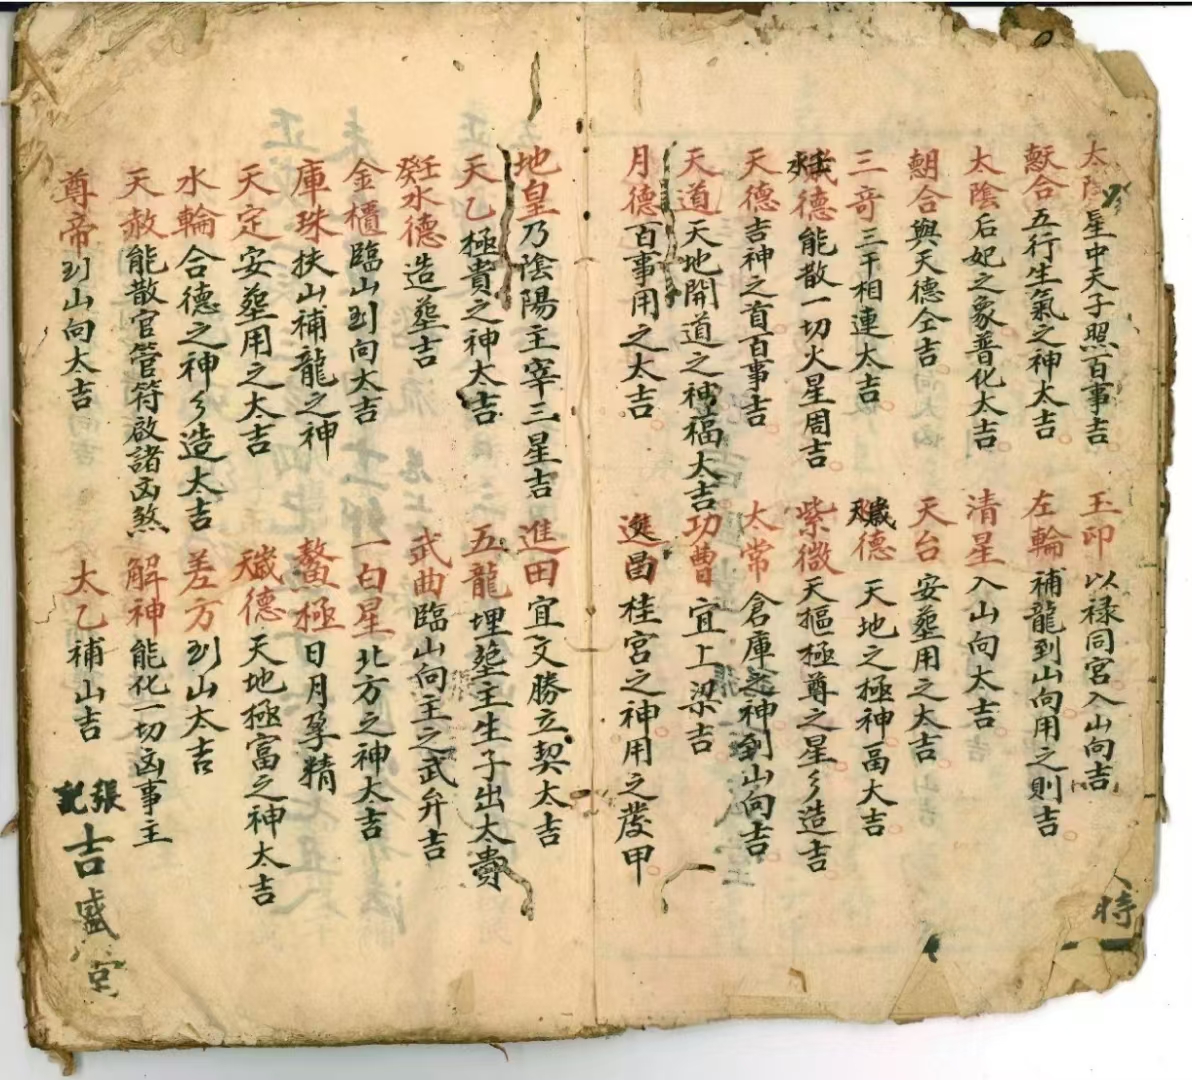 太陽星中天子照百事吉 玉印以禄同宮入山向吉
歲合五行生氣之神太吉 左輪補龍到山向用之則吉
太陰后妃之象普化太吉 清星入山向太吉
朝合與天德仝吉 天台安塟用之太吉
三竒三干相連太吉 天歲德天地之極神冨大吉
水歲德能散一切火星周吉 紫微天樞極尊之星多造吉
天德吉神之首百事吉 太常倉庫之神到山向吉
天道天地開道之神福太吉 功曹宜上梁吉
月德百事用之太吉 進畨桂宮之神用之發甲
時
地皇乃陰陽主宰三星吉 進田宜文勝立契太吉
天乙極貴之神太吉 五龍埋塟主生子出太貴
壬癸水德造塟吉 武曲臨山向主之武弁吉
金櫃臨山到向大吉 一白星北方之神大吉
庫珠扶山補龍之神 鰲極日月孕精
天定安塟用之太吉 天歲德天地極富之神太吉
水輪合德之神多造太吉 差方到山太吉
天赦能散官管符啟諸凶煞 解神能化一切凶事主
尊帝到山向太吉 太乙補山吉
張記吉盛堂